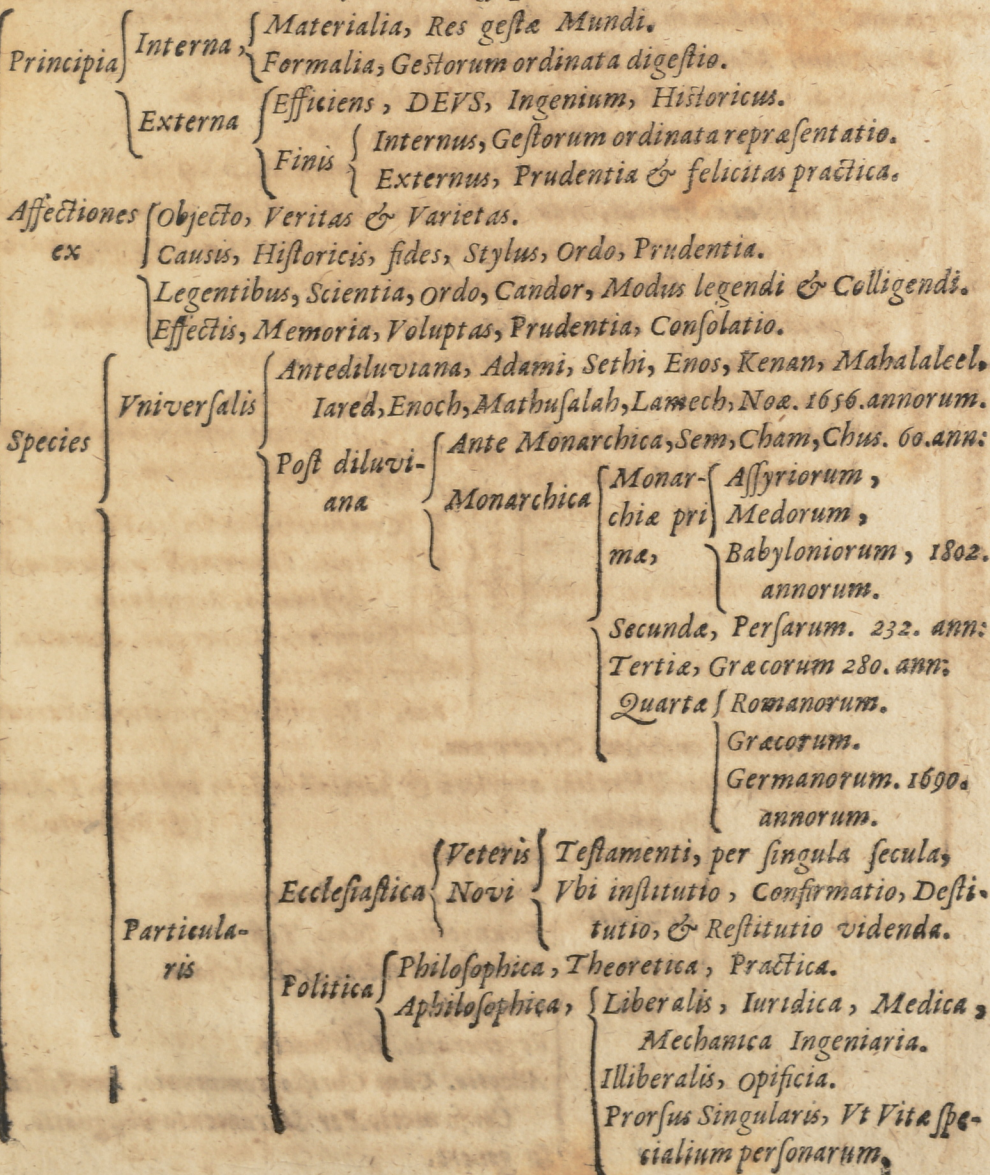 Principia Interna, Materialia, Res geſtæ Mundi.
Formalia, Geſtorum ordinata digeſtio.
Externa Efficiens, DEVS, Ingenium, Hiſtoricus.
Finis Internus, Geſtorum ordinata repræſentatio.
Externus, Prudentia & felicitas practica.
Affectiones ex Objecto, Veritas & Varietas.
Cauſis, Hiſtoricis, fides, Stylus, Ordo, Prudentia.
Legentibus, Scientia, Ordo, Candor, Modus legendi & Colligendi.
Effectis, Memoria, Voluptas, Prudentia, Conſolatio.
Species Vniverſalis Antediluviana, Adami, Sethi, Enos, Kenan, Mahalaleel,
Iared, Enoch, Mathuſalah, Lamech, Noæ. 1656. annorum.
Poſt diluvi-
ana Ante Monarchica, Sem, Cham, Chus. 60. ann:
Monarchica Monar-
chiæ pri
mæ, Aſſyriorum,
Medorum,
Babyloniorum, 1802.
annorum.
Secundæ, Perſarum. 232. ann:
Tertiæ, Græcorum 280. ann:
Quartæ Romanorum.
Græcorum.
Germanorum. 1690.
annorum.
Particula-
ris Eccleſiaſtica Veteris Novi Teſtamenti, per ſingula ſecula,
Vbi inſtitutio, Confirmatio, Deſti-
tutio, & Reſtitutio videnda.
Politica Philoſophica, Theoretica, Practica.
Aphiloſophica, Liberalis, Iuridica, Medica,
Mechanica Ingeniaria.
Illiberalis, Opificia.
Prorſus Singularis, Vt Vitæ ſpe-
cialium perſonarum.